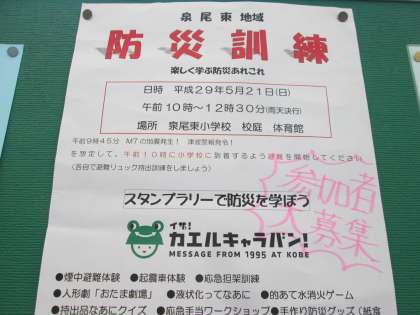 泉尾東地域
防災訓練
楽しく学ぶ防災あれこれ
日時 平成29年5月21日(日)
午前10時～12時30分(雨天決行)
場所 泉尾東小学校 校庭 体育館
午前9時45分 M7の地震発生! 津波警報発令!
を想定して、午前10時に小学校に到着するよう避難を開始してください
(各自で避難リュック持出訓練をしましょう)
参加者
大募集
スタンプラリーで防災を学ぼう
イザ!
カエルキャラバン!
MESSAGE FROM 1995 AT KOBE
●煙中避難体験 ●起震車体験 ●応急担架訓練
●人形劇「おたま劇場」 ●液状化ってなあに ●的あて水消火ゲーム
●持出品なあにクイズ ●応急手当ワークショップ ●手作り防災グッズ(紙食